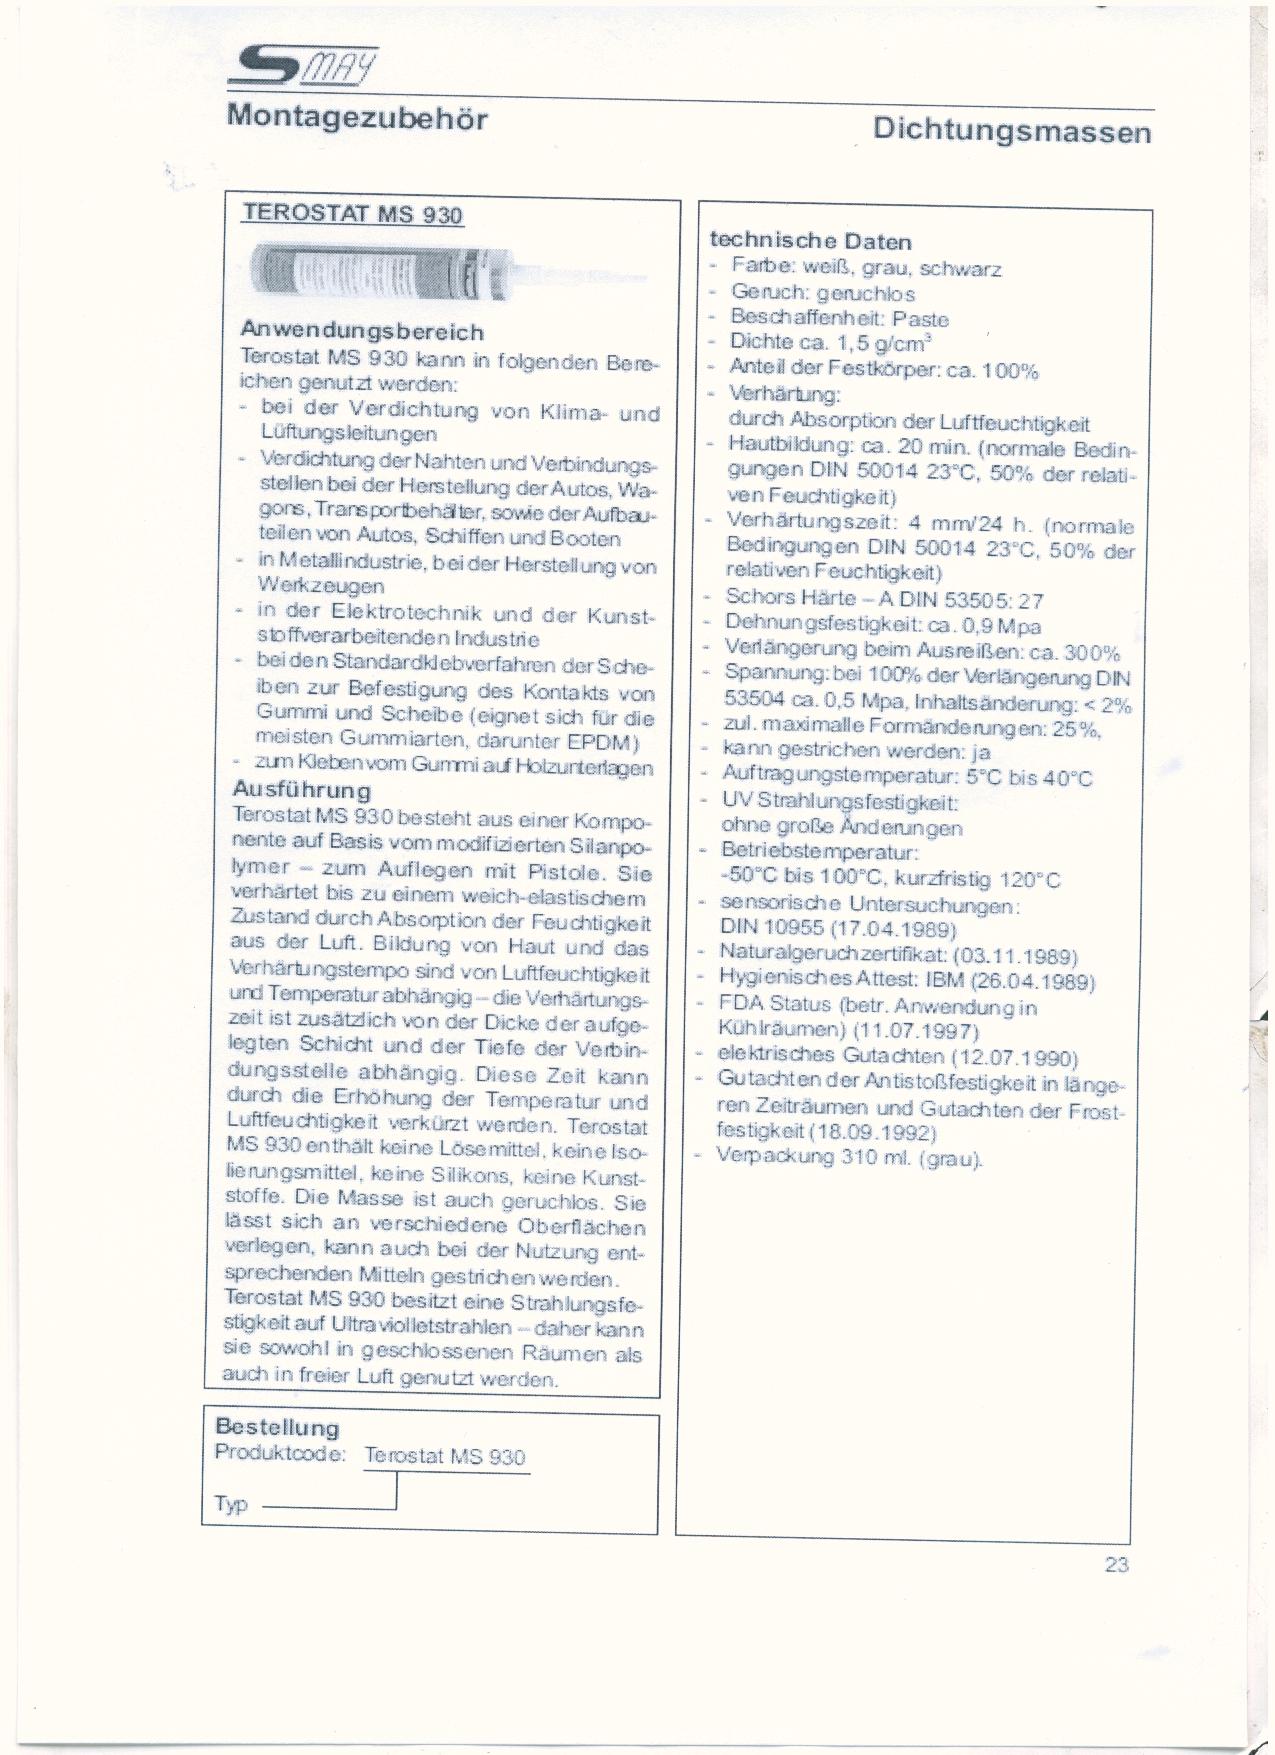 SMAY
Montagezubehör
Dichtungsmassen
TEROSTAT MS 930
Anwendungsbereich
Terostat MS 930 kann in folgenden Bere-
ichen genutzt werden:
- bei der Verdichtung von Klima- und
Lüftungsleitungen
- Verdichtung der Nahten und Verbindungs-
stellen bei der Herstellung der Autos, Wa-
gons, Transportbehälter, sowie der Aufbau-
teilen von Autos, Schiffen und Booten
- in Metallindustrie, bei der Herstellung von
Werkzeugen
- in der Elektrotechnik und der Kunst-
stoffverarbeitenden Industrie
- bei den Standardklebverfahren der Sche-
iben zur Befestigung des Kontakts von
Gummi und Scheibe (eignet sich für die
meisten Gummiarten, darunter EPDM)
- zum Kleben vom Gummi auf Holzunterlagen
Ausführung
Terostat MS 930 besteht aus einer Kompo-
nente auf Basis vom modifizierten Silanpo-
lymer – zum Auflegen mit Pistole. Sie
verhärtet bis zu einem weich-elastischem
Zustand durch Absorption der Feuchtigkeit
aus der Luft. Bildung von Haut und das
Verhärtungstempo sind von Luftfeuchtigkeit
und Temperatur abhängig – die Verhärtungs-
zeit ist zusätzlich von der Dicke der aufge-
legten Schicht und der Tiefe der Verbin-
dungsstelle abhängig. Diese Zeit kann
durch die Erhöhung der Temperatur und
Luftfeuchtigkeit verkürzt werden. Terostat
MS 930 enthält keine Lösemittel, keine Iso-
lierungsmittel, keine Silikons, keine Kunst-
stoffe. Die Masse ist auch geruchlos. Sie
lässt sich an verschiedene Oberflächen
verlegen, kann auch bei der Nutzung ent-
sprechenden Mitteln gestrichen werden.
Terostat MS 930 besitzt eine Strahlungsfe-
stigkeit auf Ultraviolletstrahlen – daher kann
sie sowohl in geschlossenen Räumen als
auch in freier Luft genutzt werden.
Bestellung
Produktcode: Terostat MS 930
Typ
technische Daten
- Farbe: weiß, grau, schwarz
- Geruch: geruchlos
- Beschaffenheit: Paste
- Dichte ca. 1,5 g/cm³
- Anteil der Festkörper: ca. 100%
- Verhärtung:
durch Absorption der Luftfeuchtigkeit
- Hautbildung: ca. 20 min. (normale Bedin-
gungen DIN 50014 23°C, 50% der relati-
ven Feuchtigkeit)
- Verhärtungszeit: 4 mm/24 h. (normale
Bedingungen DIN 50014 23°C, 50% der
relativen Feuchtigkeit)
- Schors Härte – A DIN 53505: 27
- Dehnungsfestigkeit: ca. 0,9 Mpa
- Verlängerung beim Ausreißen: ca. 300%
- Spannung: bei 100% der Verlängerung DIN
53504 ca. 0,5 Mpa, Inhaltsänderung: < 2%
- zul. maximalle Formänderungen: 25%,
- kann gestrichen werden: ja
- Auftragungstemperatur: 5°C bis 40°C
- UV Strahlungsfestigkeit:
ohne große Änderungen
- Betriebstemperatur:
-50°C bis 100°C, kurzfristig 120°C
- sensorische Untersuchungen:
DIN 10955 (17.04.1989)
- Naturalgeruchzertifikat: (03.11.1989)
- Hygienisches Attest: IBM (26.04.1989)
- FDA Status (betr. Anwendung in
Kühlräumen) (11.07.1997)
- elektrisches Gutachten (12.07.1990)
- Gutachten der Antistoßfestigkeit in länge-
ren Zeiträumen und Gutachten der Frost-
festigkeit (18.09.1992)
- Verpackung 310 ml. (grau).
23